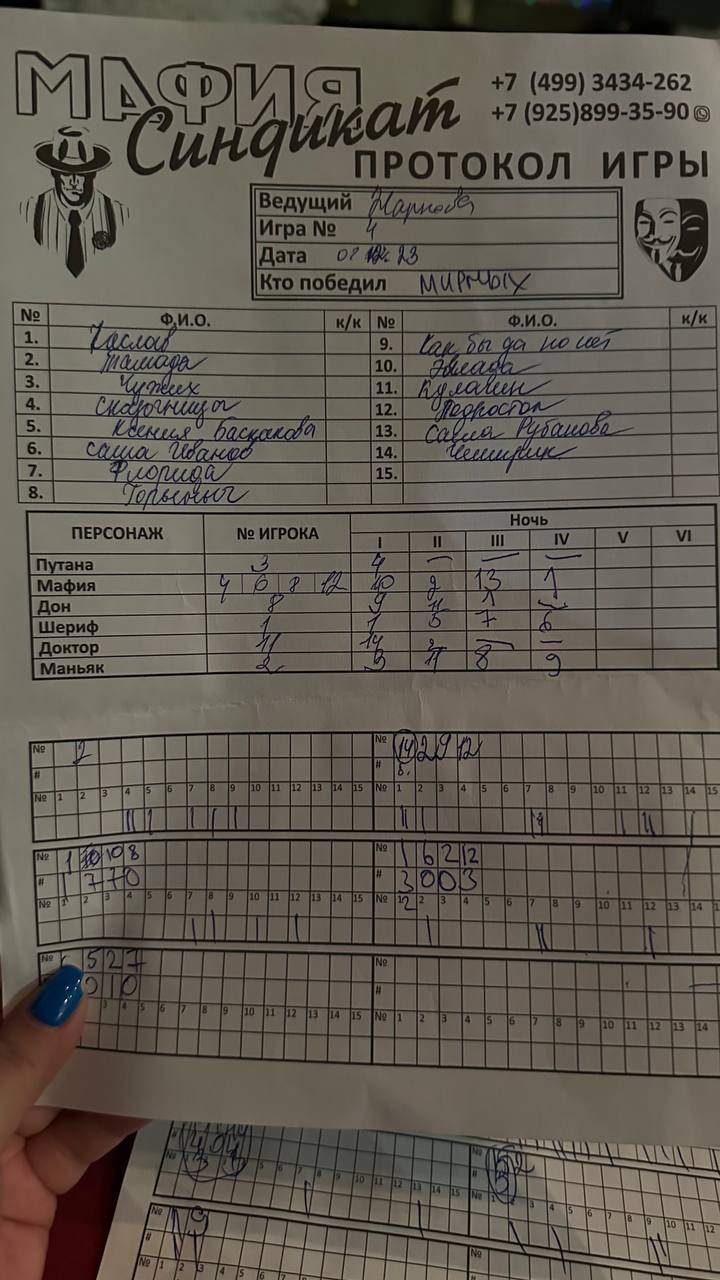 МАФИЯ
Синдикат
+7 (499) 3434-262
+7 (925)899-35-90
ПРОТОКОЛ ИГРЫ
Ведущий
Игра № 4
Дата 23
Кто победил МИРНЫХ
№ Ф.И.О. к/к № Ф.И.О. к/к
1. 9. Как бы да но нет
2. Тамада 10.
3. Чужих 11. Кулакин
4. Сказочницы 12. Подросток
5. Ксения Баскакова 13. Саша Рубанова
6. Саша Иванов 14. Чеширик
7. Флорида 15.
8. Горыныч
ПЕРСОНАЖ № ИГРОКА Ночь
I II III IV V VI
Путана 3 4 — — —
Мафия 4 6 8 12 10 2 13 1
Дон 8 9 11 1
Шериф 1 1 5 7 6
Доктор 11 14 2 — —
Маньяк 2 3 11 8 9
№ 2 № 14 2 9 12
# #
№ 1 2 3 4 5 6 7 8 9 10 11 12 13 14 15 № 1 2 3 4 5 6 7 8 9 10 11 12 13 14 15
№ 1 10 8 № 1 6 2 12
# 1 7 7 0 # 3 0 0 3
№ 1 2 3 4 5 6 7 8 9 10 11 12 13 14 15 № 2 3 4 5 6 7 8 9 10 11 12 13 14
№ 5 2 7 №
0 1 0 #
3 4 5 6 7 8 9 10 11 12 13 14 15 № 1 2 3 4 5 6 7 8 9 10 11 12 13 14
#
№ 5 6 7 8 9 10 11 12 13 14 15 №
№ 9
#
№ 1 2 3 4 5 6 7 8 9 10 11 12 13 14 15 №